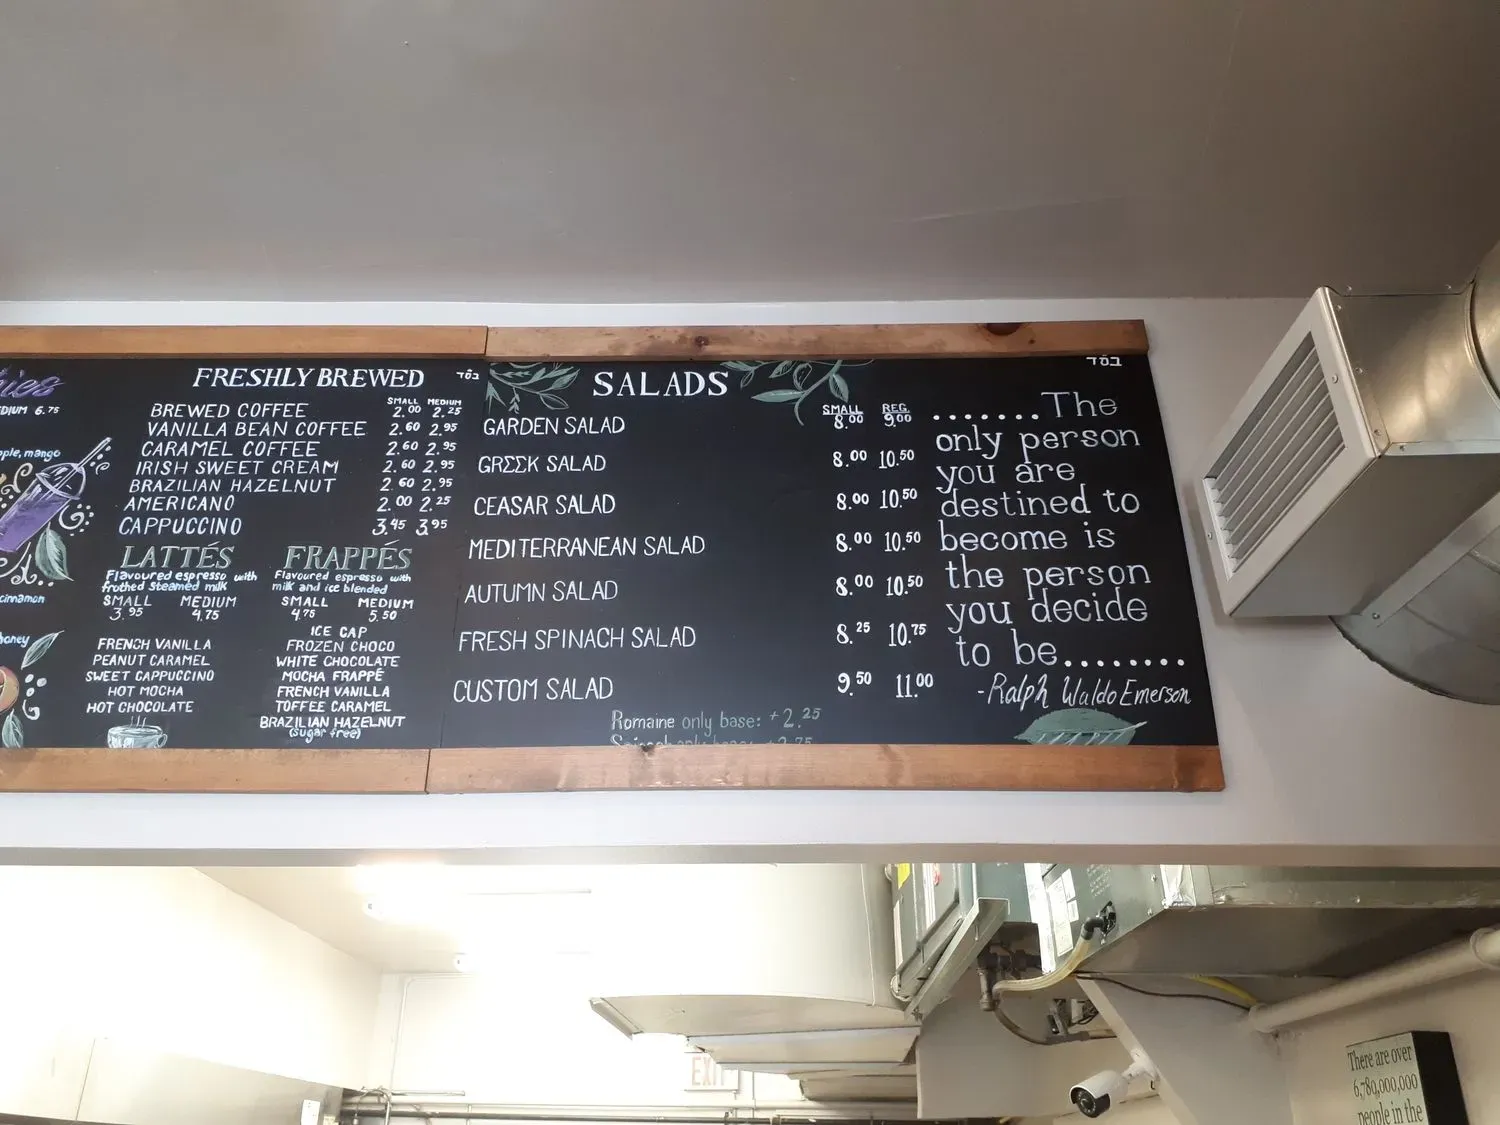 DIUM 6.75
ple, mango
cinnamon
honey
FRESHLY BREWED
בס"ד
SMALL MEDIUM
BREWED COFFEE 2.00 2.25
VANILLA BEAN COFFEE 2.60 2.95
CARAMEL COFFEE 2.60 2.95
IRISH SWEET CREAM 2.60 2.95
BRAZILIAN HAZELNUT 2.60 2.95
AMERICANO 2.00 2.25
CAPPUCCINO 3.45 3.95
LATTÉS
Flavoured espresso with
frothed steamed milk
SMALL MEDIUM
3.95 4.75
FRENCH VANILLA
PEANUT CARAMEL
SWEET CAPPUCCINO
HOT MOCHA
HOT CHOCOLATE
FRAPPÉS
Flavoured espresso with
milk and ice blended
SMALL MEDIUM
4.75 5.50
ICE CAP
FROZEN CHOCO
WHITE CHOCOLATE
MOCHA FRAPPÉ
FRENCH VANILLA
TOFFEE CARAMEL
BRAZILIAN HAZELNUT
(sugar free)
SALADS
SMALL REG.
GARDEN SALAD 8.00 9.00
GRΣΣK SALAD 8.00 10.50
CEASAR SALAD 8.00 10.50
MEDITERRANEAN SALAD 8.00 10.50
AUTUMN SALAD 8.00 10.50
FRESH SPINACH SALAD 8.25 10.75
CUSTOM SALAD 9.50 11.00
Romaine only base: +2.25
בס"ד
.......The
only person
you are
destined to
become is
the person
you decide
to be........
-Ralph Waldo Emerson
EXIT
There are over
6,780,000,000
people in the